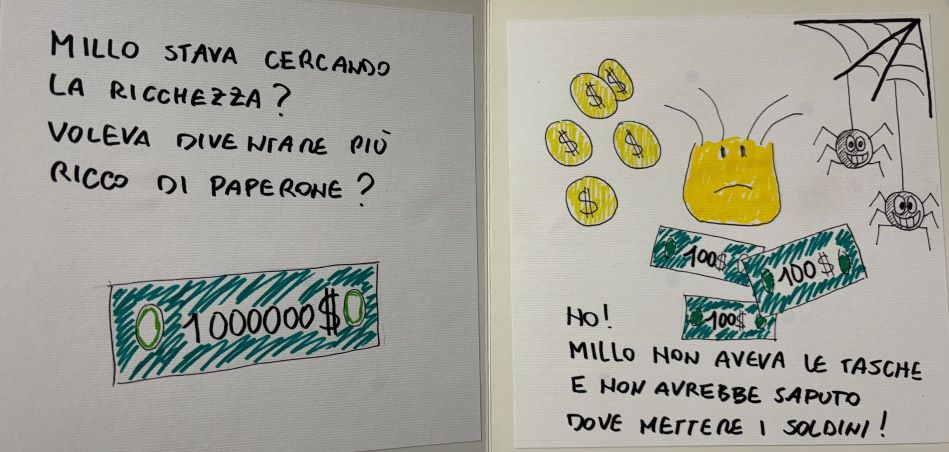 MILLO STAVA CERCANDO
LA RICCHEZZA?
VOLEVA DIVENTARE PIÙ
RICCO DI PAPERONE?
1000000$
$
$
$
$
$
100$
100$
100$
NO!
MILLO NON AVEVA LE TASCHE
E NON AVREBBE SAPUTO
DOVE METTERE I SOLDINI!